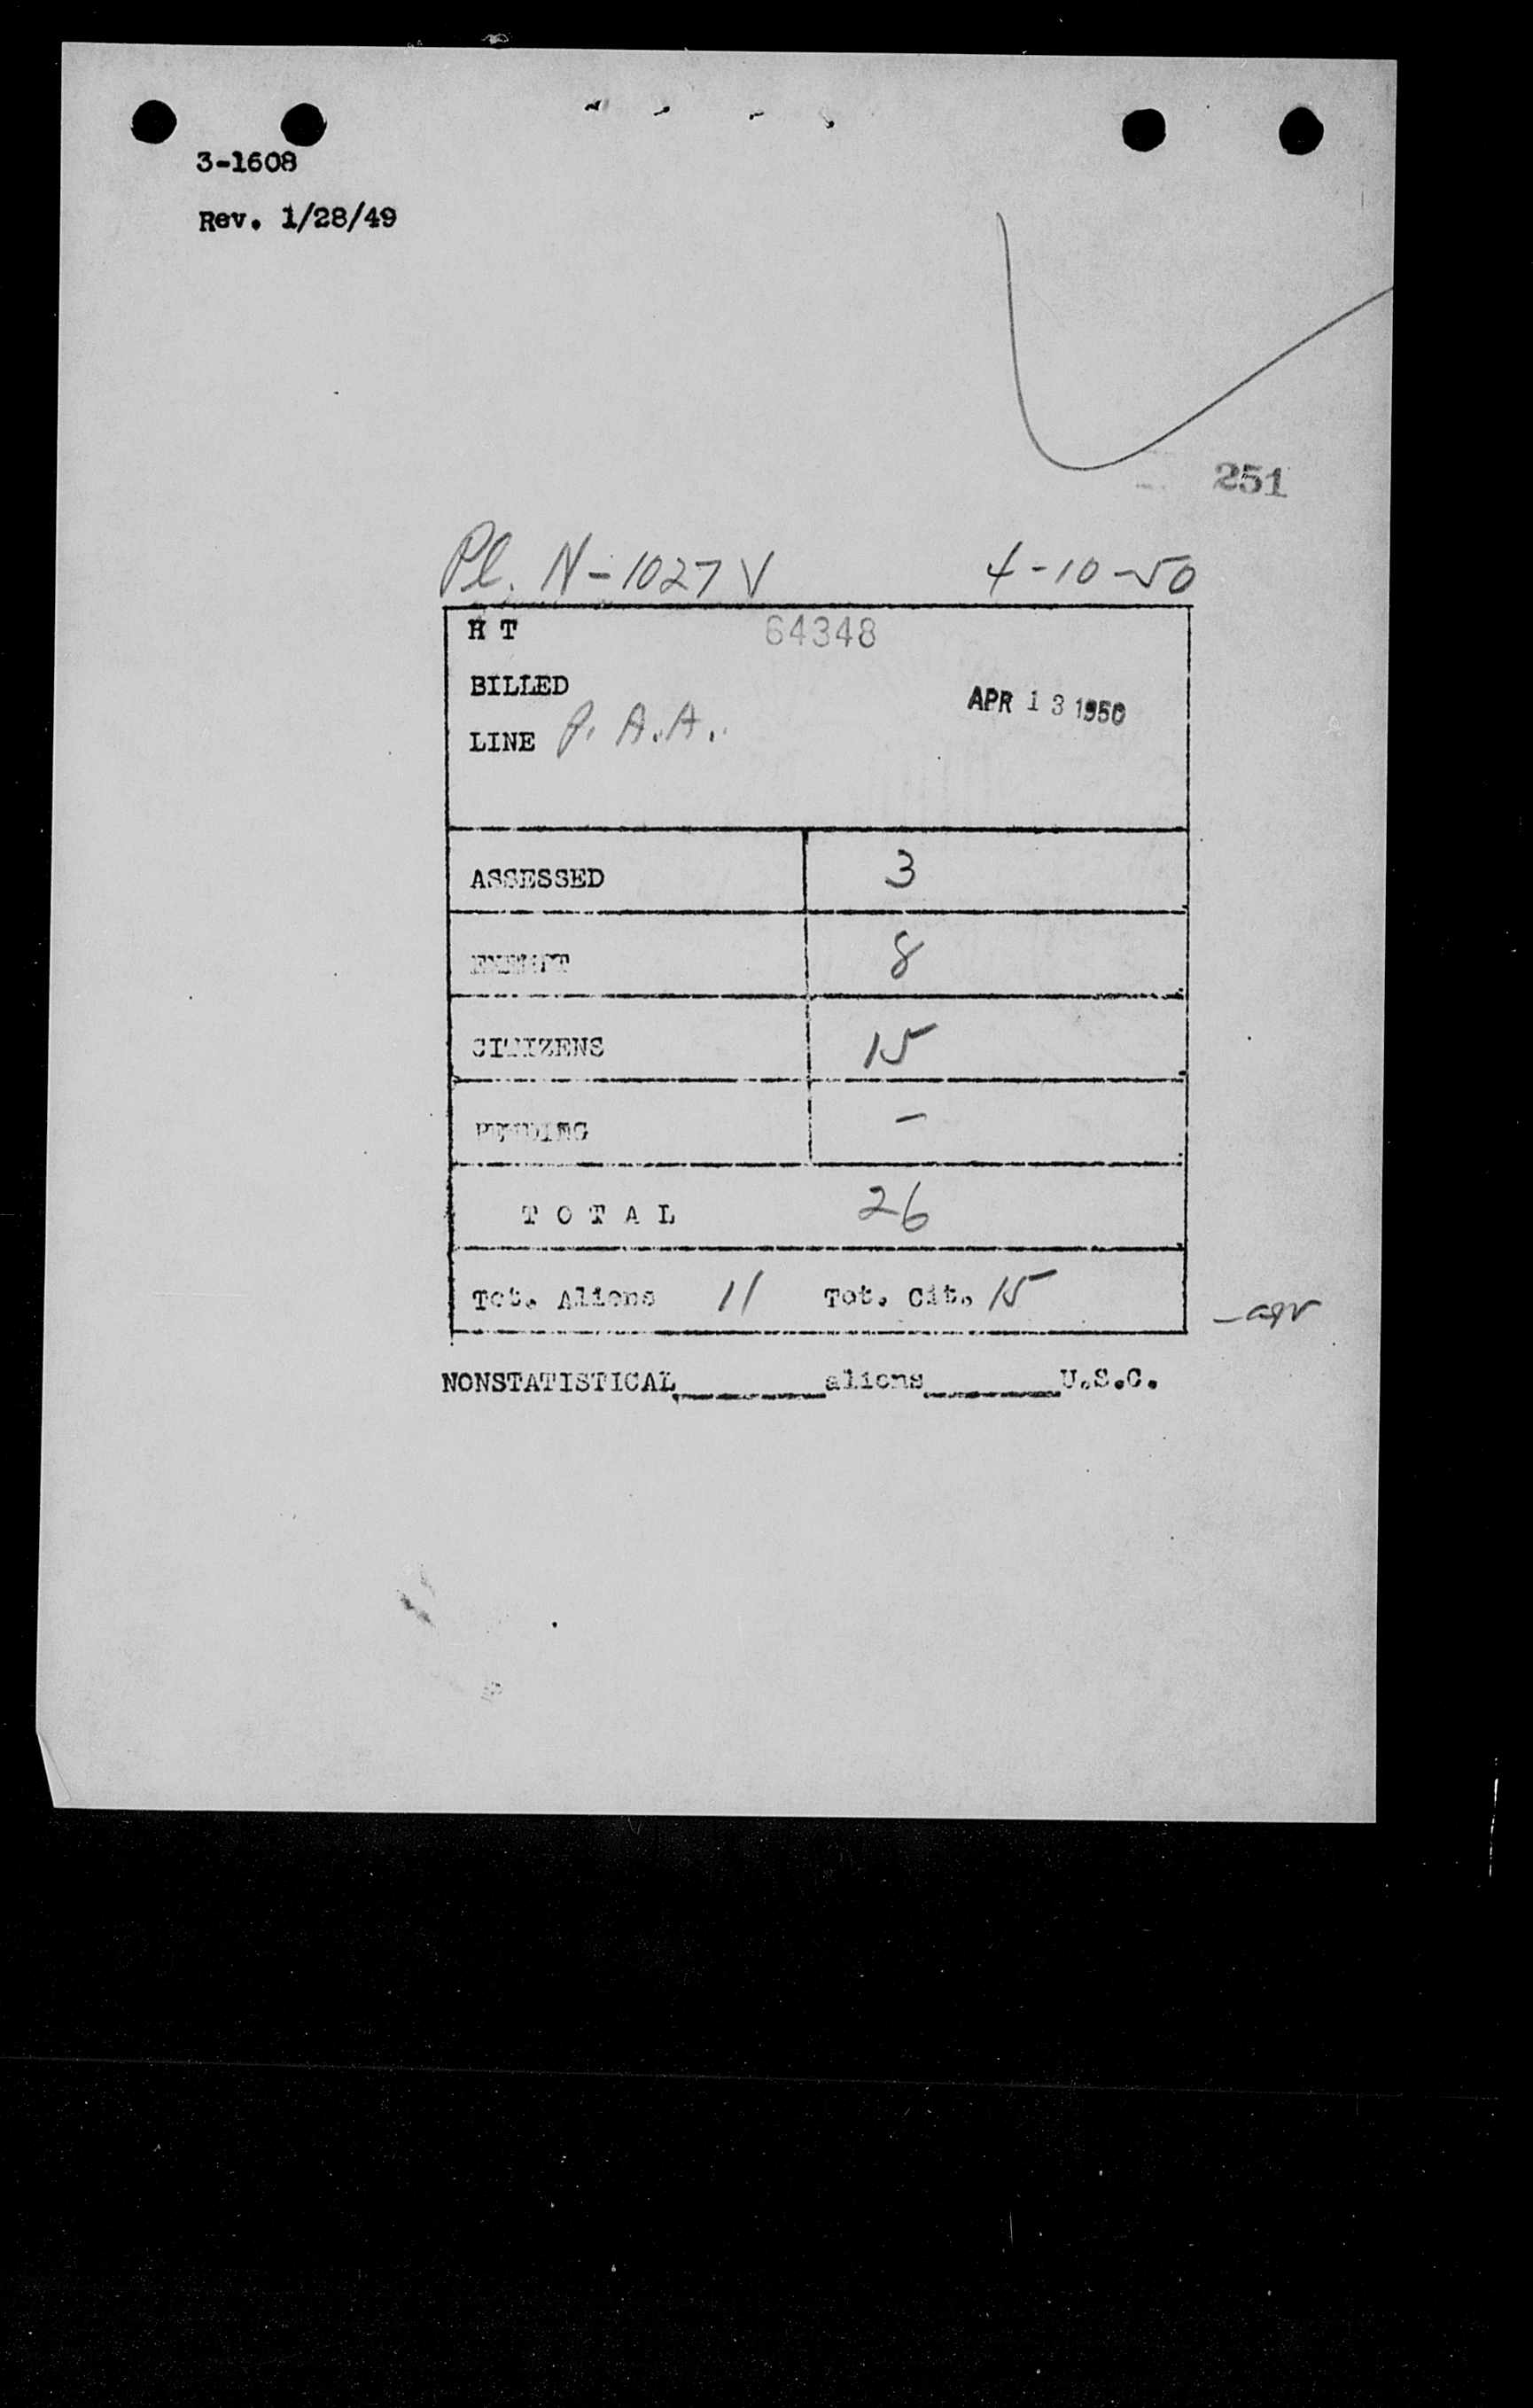 3-1608
Rev. 1/28/49
251
Pl. N-1027V 4-10-50
H T 64348
BILLED
APR 13 1950
LINE P. A. A.
ASSESSED 3
EXEMPT 8
CITIZENS 15
PENDING -
T O T A L 26
Tot. Aliens 11 Tot. Cit. 15
NONSTATISTICAL______aliens______U.S.C.